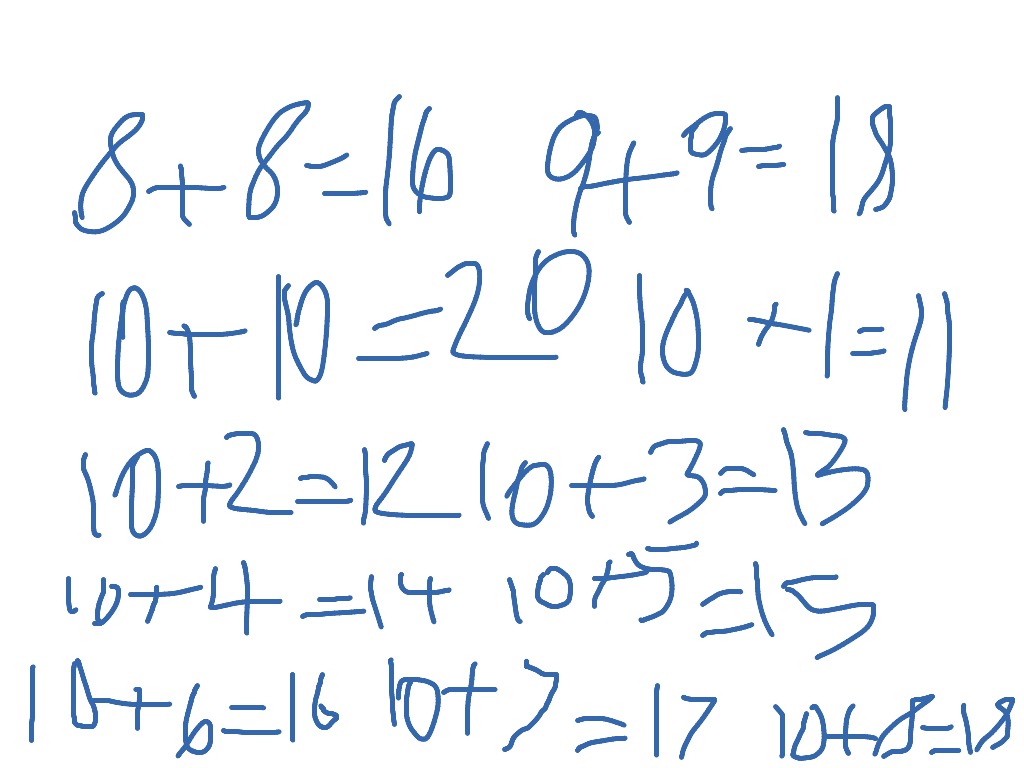 8+8=16 9+9=18
10+10=20 10+1=11
10+2=12 10+3=13
10+4=14 10+5=15
10+6=16 10+7=17 10+8=18